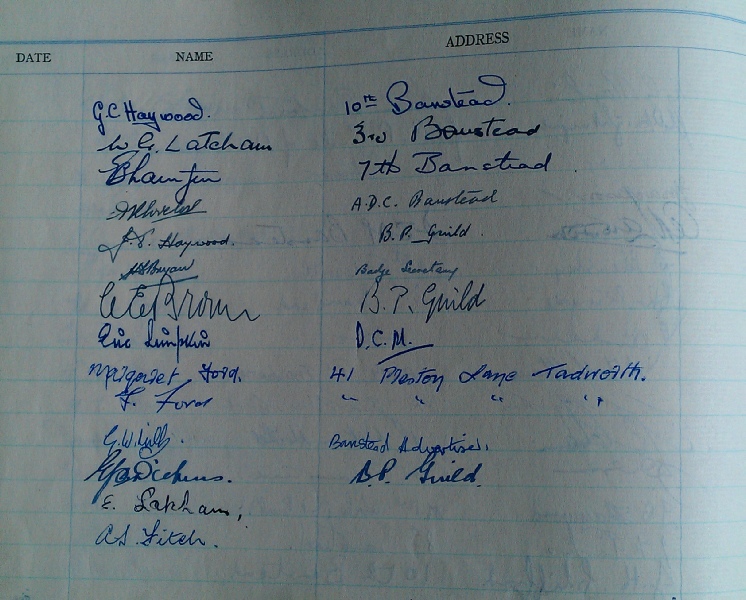 DATE NAME ADDRESS
G.C Haywood. 10th Banstead.
W G. Latcham 3rd Banstead
7th Banstead.
A.D.C. Banstead
J.E. Haywood. B.P. Guild.
Bryan Badge Secretary
Brown B.P. Guild
Eric Lumpkin D.C.M.
Margaret Ford. 41 Preston Lane Tadworth.
F. Ford " " " "
G.W. Banstead Advertiser.
Dickens. B.P. Guild.
E. Lapham,
A.S. Fitch.